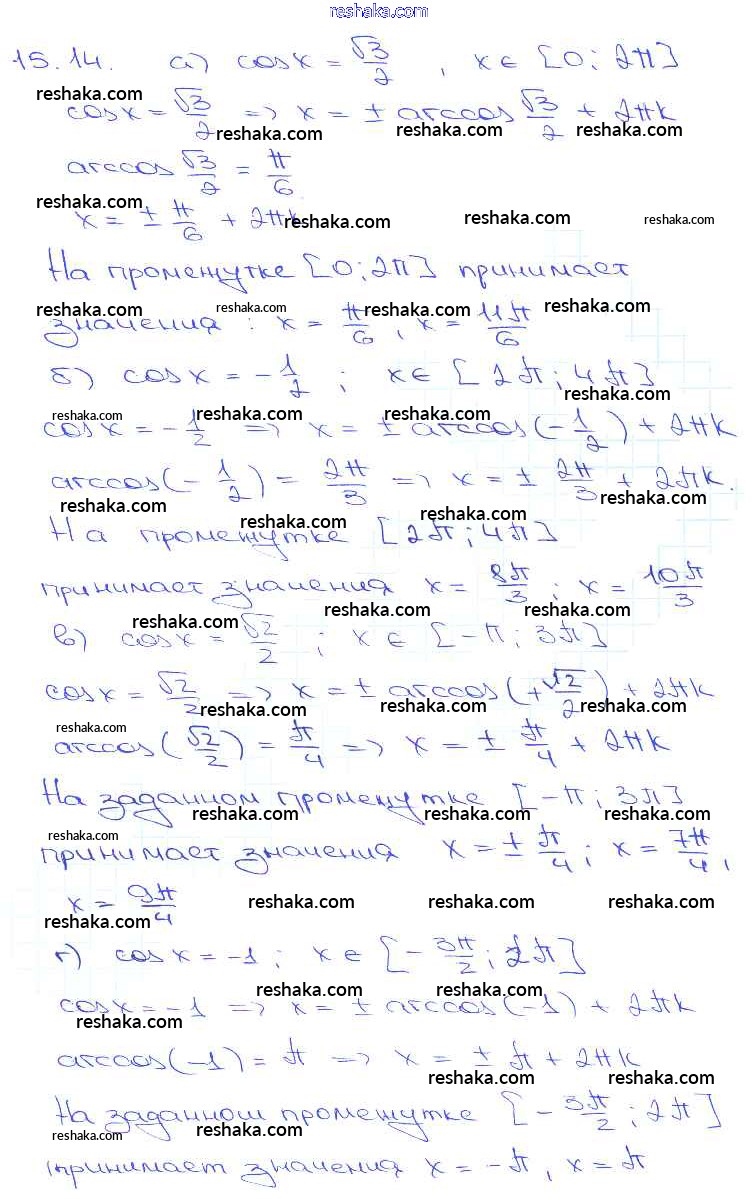 reshaka.com
15.14. а) cosx = √3/2 , x ∈ [0; 2π]
reshaka.com
cosx = √3/2 => x = ± arccos √3/2 + 2πk
reshaka.com reshaka.com reshaka.com
arccos √3/2 = π/6
reshaka.com
x = ± π/6 + 2πk
reshaka.com reshaka.com reshaka.com
На промежутке [0; 2π] принимает
reshaka.com reshaka.com reshaka.com reshaka.com
значения : x = π/6 , x = 11π/6
б) cosx = -1/2 ; x ∈ [2π; 4π]
reshaka.com
reshaka.com reshaka.com reshaka.com
cosx = -1/2 => x = ± arccos(-1/2) + 2πk
arccos(-1/2) = 2π/3 => x = ± 2π/3 + 2πk.
reshaka.com reshaka.com reshaka.com
reshaka.com reshaka.com
На промежутке [2π; 4π]
принимает значения x = 8π/3 ; x = 10π/3
reshaka.com reshaka.com reshaka.com
в) cosx = √2/2 ; x ∈ [-π; 3π]
cosx = √2/2 => x = ± arccos(+√2/2) + 2πk
reshaka.com reshaka.com reshaka.com
reshaka.com
arccos(√2/2) = π/4 => x = ± π/4 + 2πk
На заданном промежутке [-π; 3π]
reshaka.com reshaka.com reshaka.com reshaka.com
принимает значения x = ± π/4 ; x = 7π/4 ,
x = 9π/4
reshaka.com reshaka.com reshaka.com reshaka.com
г) cosx = -1 ; x ∈ [-3π/2; 2π]
reshaka.com reshaka.com
cosx = -1 => x = ± arccos(-1) + 2πk
reshaka.com reshaka.com reshaka.com
arccos(-1) = π => x = ± π + 2πk
reshaka.com reshaka.com
На заданном промежутке [-3π/2; 2π]
reshaka.com reshaka.com reshaka.com
принимает значения x = -π , x = π